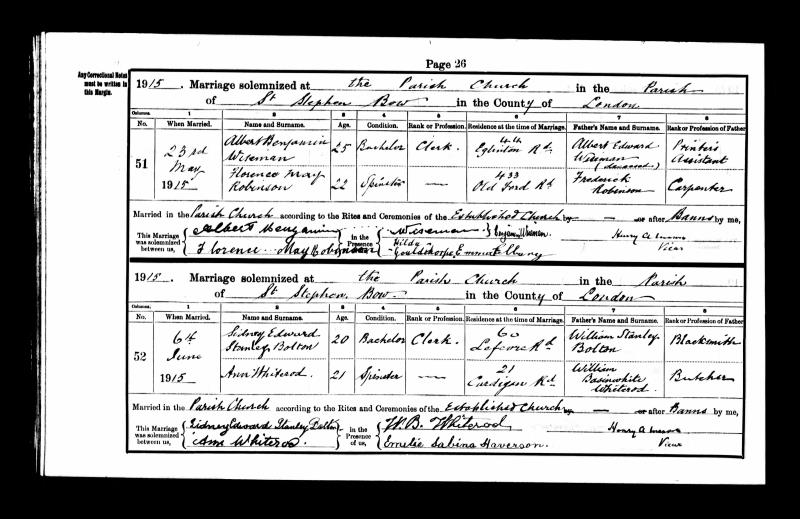 Page 26
Any Correctional Notes
must be written in
this Margin.
1915. Marriage solemnized at the Parish Church in the Parish
of St Stephen Bow in the County of London
Columns. 1 2 3 4 5 6 7 8
No. When Married. Name and Surname. Age. Condition. Rank or Profession. Residence at the time of Marriage. Father's Name and Surname. Rank or Profession of Father
51
23rd May 1915
Albert Benjamin Wiseman 25 Bachelor Clerk. 44 Eglinton Rd. Albert Edward Wiseman (deceased.) Printer's Assistant
Florence May Robinson 22 Spinster — 433 Old Ford Rd Frederick Robinson Carpenter
Married in the Parish Church according to the Rites and Ceremonies of the Established Church by — or after Banns by me,
This Marriage was solemnized between us,
Albert Benjamin Wiseman
Florence May Robinson
in the Presence of us,
Benjamin Wiseman.
Hilda
Emma
Henry A
Vicar
1915. Marriage solemnized at the Parish Church in the Parish
of St Stephen, Bow in the County of London
Columns. 1 2 3 4 5 6 7 8
No. When Married. Name and Surname. Age. Condition. Rank or Profession. Residence at the time of Marriage. Father's Name and Surname. Rank or Profession of Father
52
6th June 1915
Sidney Edward Stanley Bolton 20 Bachelor Clerk. 60 Lefevre Rd William Stanley Bolton Blacksmith
Ann Whiterod. 21 Spinster — 21 Cardigan Rd William Whiterod. Butcher
Married in the Parish Church according to the Rites and Ceremonies of the Established Church by — or after Banns by me,
This Marriage was solemnized between us,
Sidney Edward Stanley Bolton
Ann Whiterod
in the Presence of us,
W. B. Whiterod
Emelie Sabina Haverson.
Henry A
Vicar